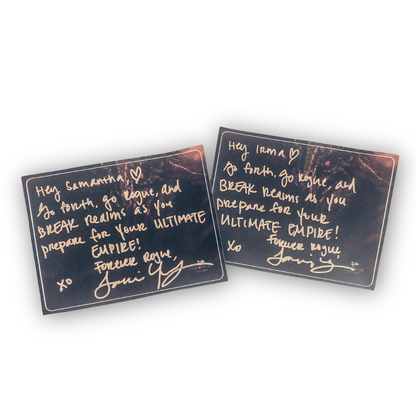 Hey Samantha, ♡
Go forth, go rogue, and
BREAK realms as you
prepare for your ULTIMATE
EMPIRE!
Forever Rogue,
xo
Hey Irma ♡
Go forth, go rogue, and
BREAK realms as you
prepare for your
ULTIMATE EMPIRE!
Forever Rogue
xo